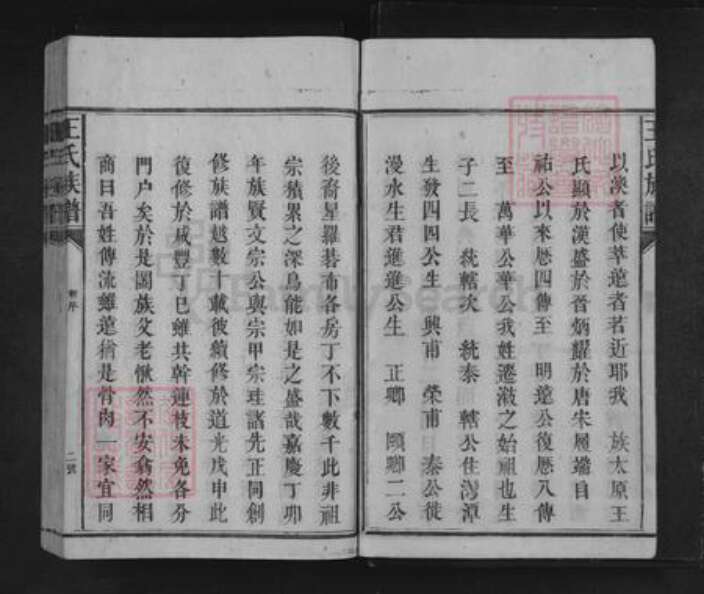 以渙者使萃遠者若近耶我 族太原王
氏顯於漢盛於晉炳耀於唐宋厯端自
祐公以來厯四傳至 明遠公復厯八傳
至 萬華公華公我姓遷潊之始祖也生
子二長 統轄次 統泰 轄公住灣潭
生發四四公生 興甫 榮甫 泰公徙
漫水生君進進公生 正卿 頤卿二公
後裔星羅碁布各房丁不下數千此非祖
宗積累之深烏能如是之盛哉嘉慶丁卯
年族賢文宗公與宗甲宗珪諸先正同創
修族譜越數十載彼續修於道光戊申此
復修於咸豐丁巳雖其幹連枝未免各分
門户矣於是闔族父老愀然不安翕然相
商曰吾姓傳流雖遠猶是骨肉一家宜同
王氏族譜
新序
二號
王氏族譜
FamilySearch